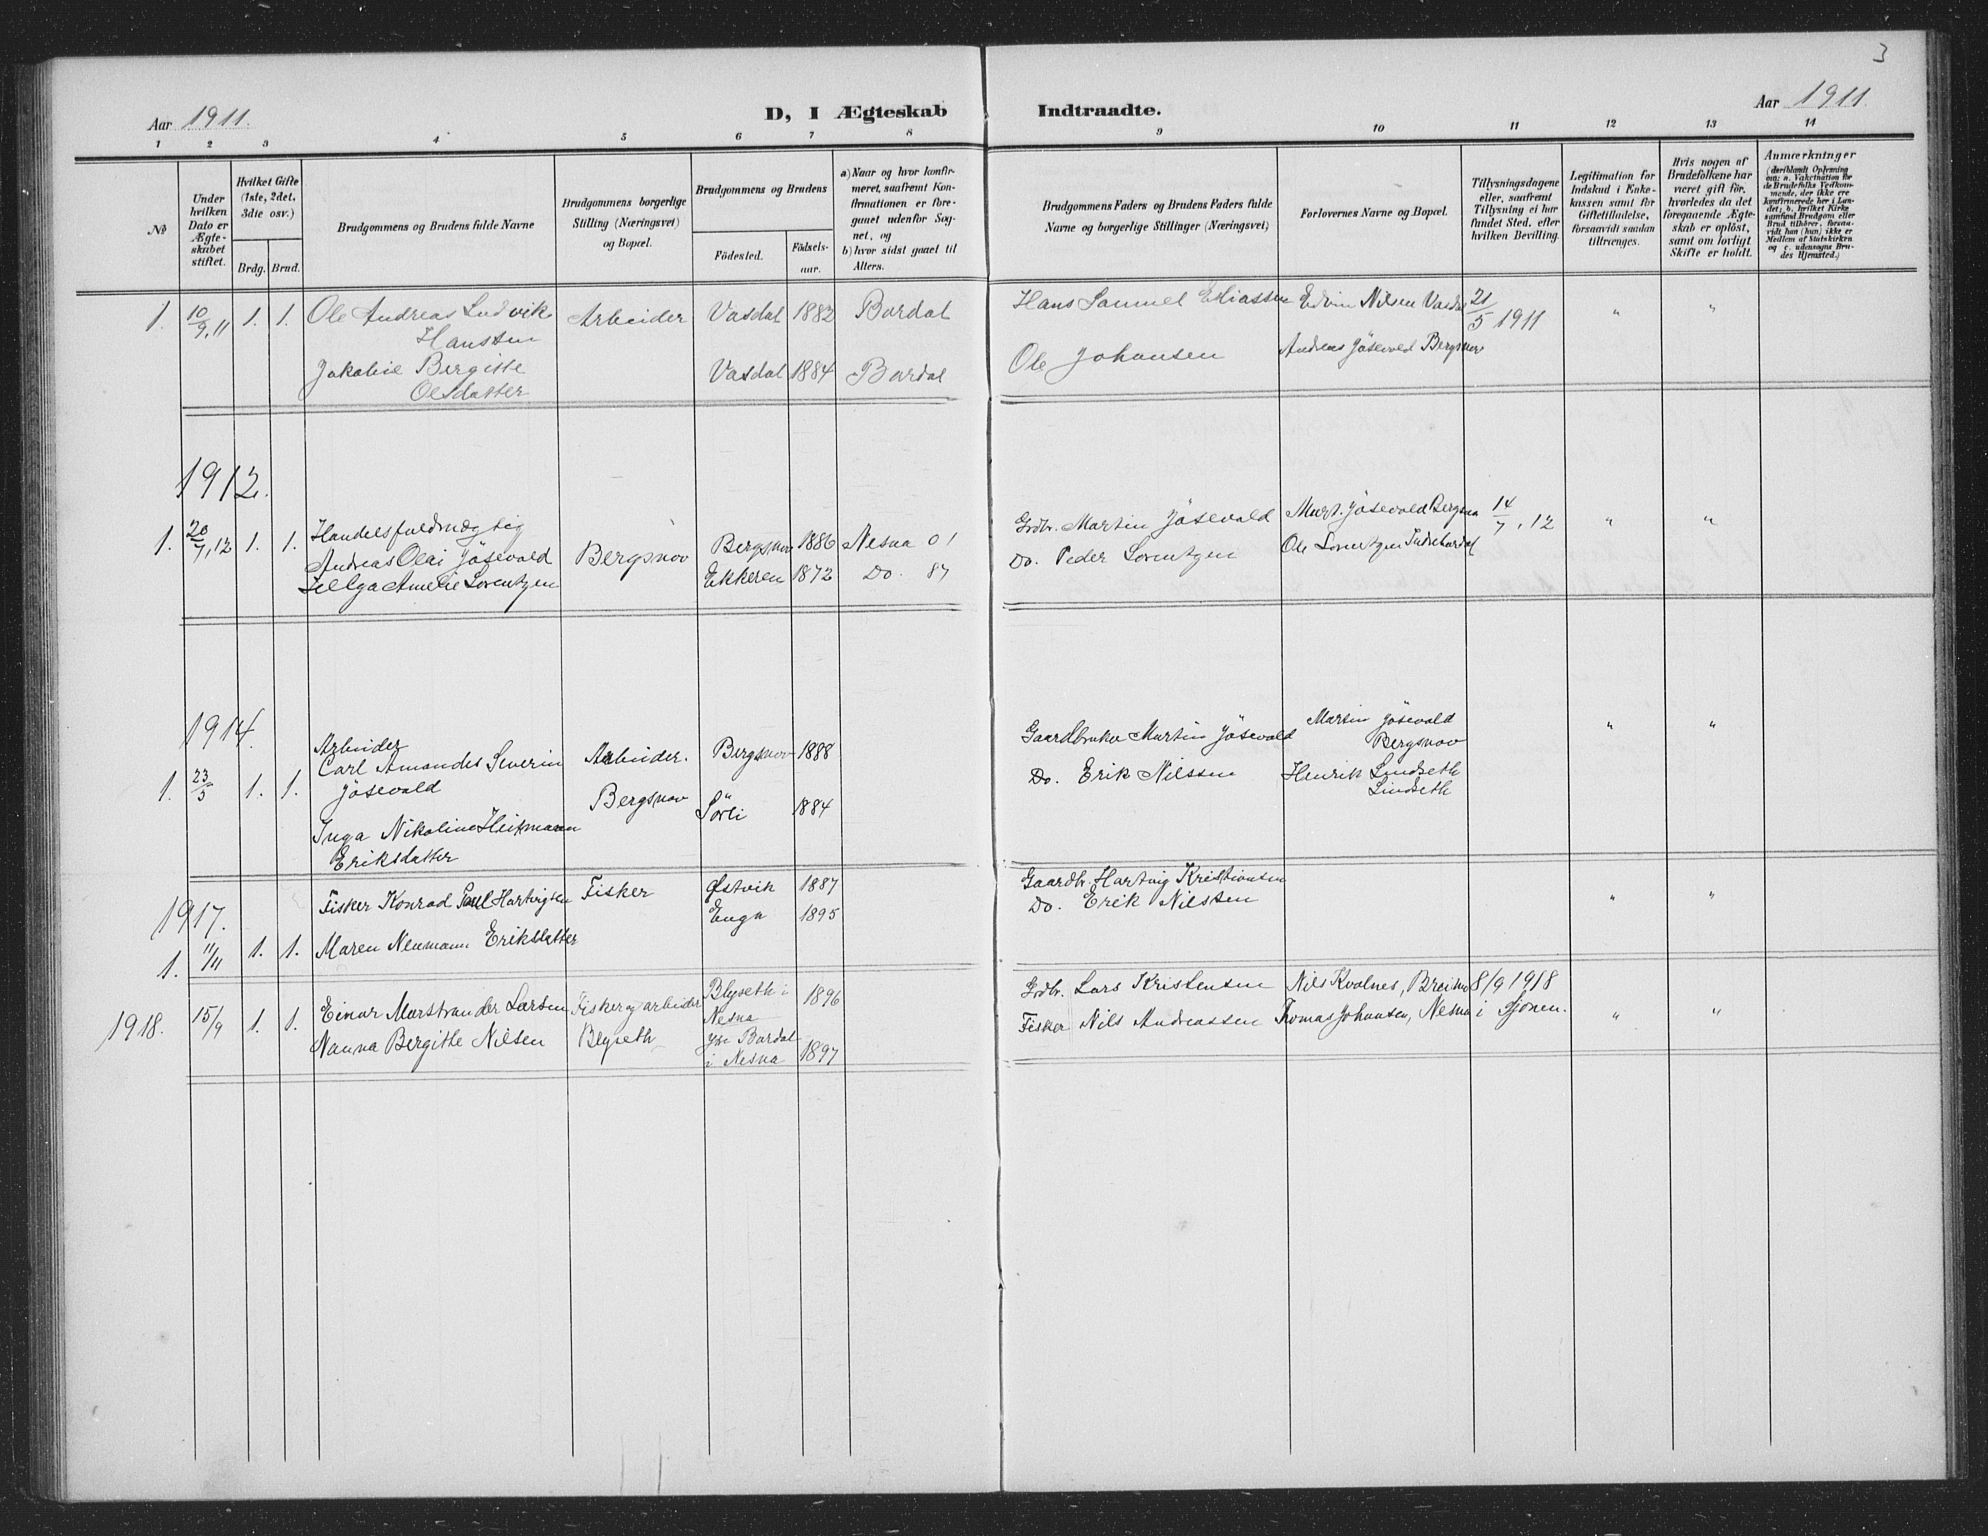 3
Aar 1911.
D, I Ægteskab
Indtraadte.
Aar 1911.
1 2 3 4 5 6 7 8 9 10 11 12 13 14
№
Under hvilken Dato er Ægteskabet stiftet.
Hvilket Gifte (1ste, 2det, 3die osv.)
Brdg. Brud.
Brudgommens og Brudens fulde Navne
Brudgommens borgerlige Stilling (Næringsvei) og Bopæl.
Brudgommens og Brudens
Fødested.
Fødselsaar.
a) Naar og hvor konfirmeret, saafremt Konfirmationen er foregaaet udenfor Sognet, og
b) hvor sidst gaaet til Alters.
Brudgommens Faders og Brudens Faders fulde Navne og borgerlige Stillinger (Næringsvei)
Forlovernes Navne og Bopæl.
Tillysningsdagene eller, saafremt Tillysning ei har fundet Sted, efter hvilken Bevilling.
Legitimation for Indskud i Enkekassen samt for Giftetilladelse, forsaavidt saadan tiltrænges.
Hvis nogen af Brudefolkene har været gift før, hvorledes da det foregaaende Ægteskab er opløst, samt om lovligt Skifte er holdt.
Anmærkninger
(deriblandt Oplysning om: a. Vakcination for de Brudefolks Vedkommende, der ikke ere konfirmerede her i Landet; b. hvilket Kirkesamfund Brudgom eller Brud tilhører, forsaavidt han (hun) ikke er Medlem af Statskirken og c. udensogns Brudes Hjemsted.)
1. 10/9, 11 1. 1. Ole Andreas Ludvik Arbeider Vasdal 1882 Bardal Hans Samuel Eliassen Edvin Nilsen Vasdal 21/5 1911 " "
Hanssen
Jakobie Bergitte Vasdal 1884 Bardal Ole Johansen Andreas Jösevold Bergsnov
Olsdatter
1912.
1. 20/7, 12 1. 1. Handelsfuldmægtig
Andreas Olai Jösevold Bergsnov Bergsnov 1886 Nesna 01 Grdbr. Martin Jösevold Mart. Jösevold Bergsnov 14/7, 12 " "
Helga Amelie Lorentzen Ekkeren 1872 Do. 87 Do. Peder Lorentzen Ole Lorentzen Indrebardal
1914.
Arbeider
1. 23/5 1. 1. Carl Amandes Severin Arbeider. Bergsnov 1888 Gaardbruker Martin Jösevold Martin Jösevold " "
Bergsnov
Jösevold Bergsnov Do. Erik Nilssen Henrik Lindseth
Lindseth
Inga Nikoline Heitmann Sörli 1884
Eriksdatter
1917.
1. 11/11 1. 1. Fisker Konrad Paul Hartvigsen Fisker Østvik 1887 Gaardbr. Hartvig Kristiansen " "
Maren Neumann Eriksdatter Enga 1895 Do. Erik Nilssen
1918. 15/9 1. 1. Einar Marstrander Larsen Fisker og arbeider Blyseth i Nesna 1896 Grdbr. Lars Kristensen Nils Kvalnes, 8/9 1918 " "
Nanna Bergitte Nilsen Blyseth Bardal i Nesna 1897 Fisker Nils Andreassen Thomas Johansen, Nesna i Sjonen.